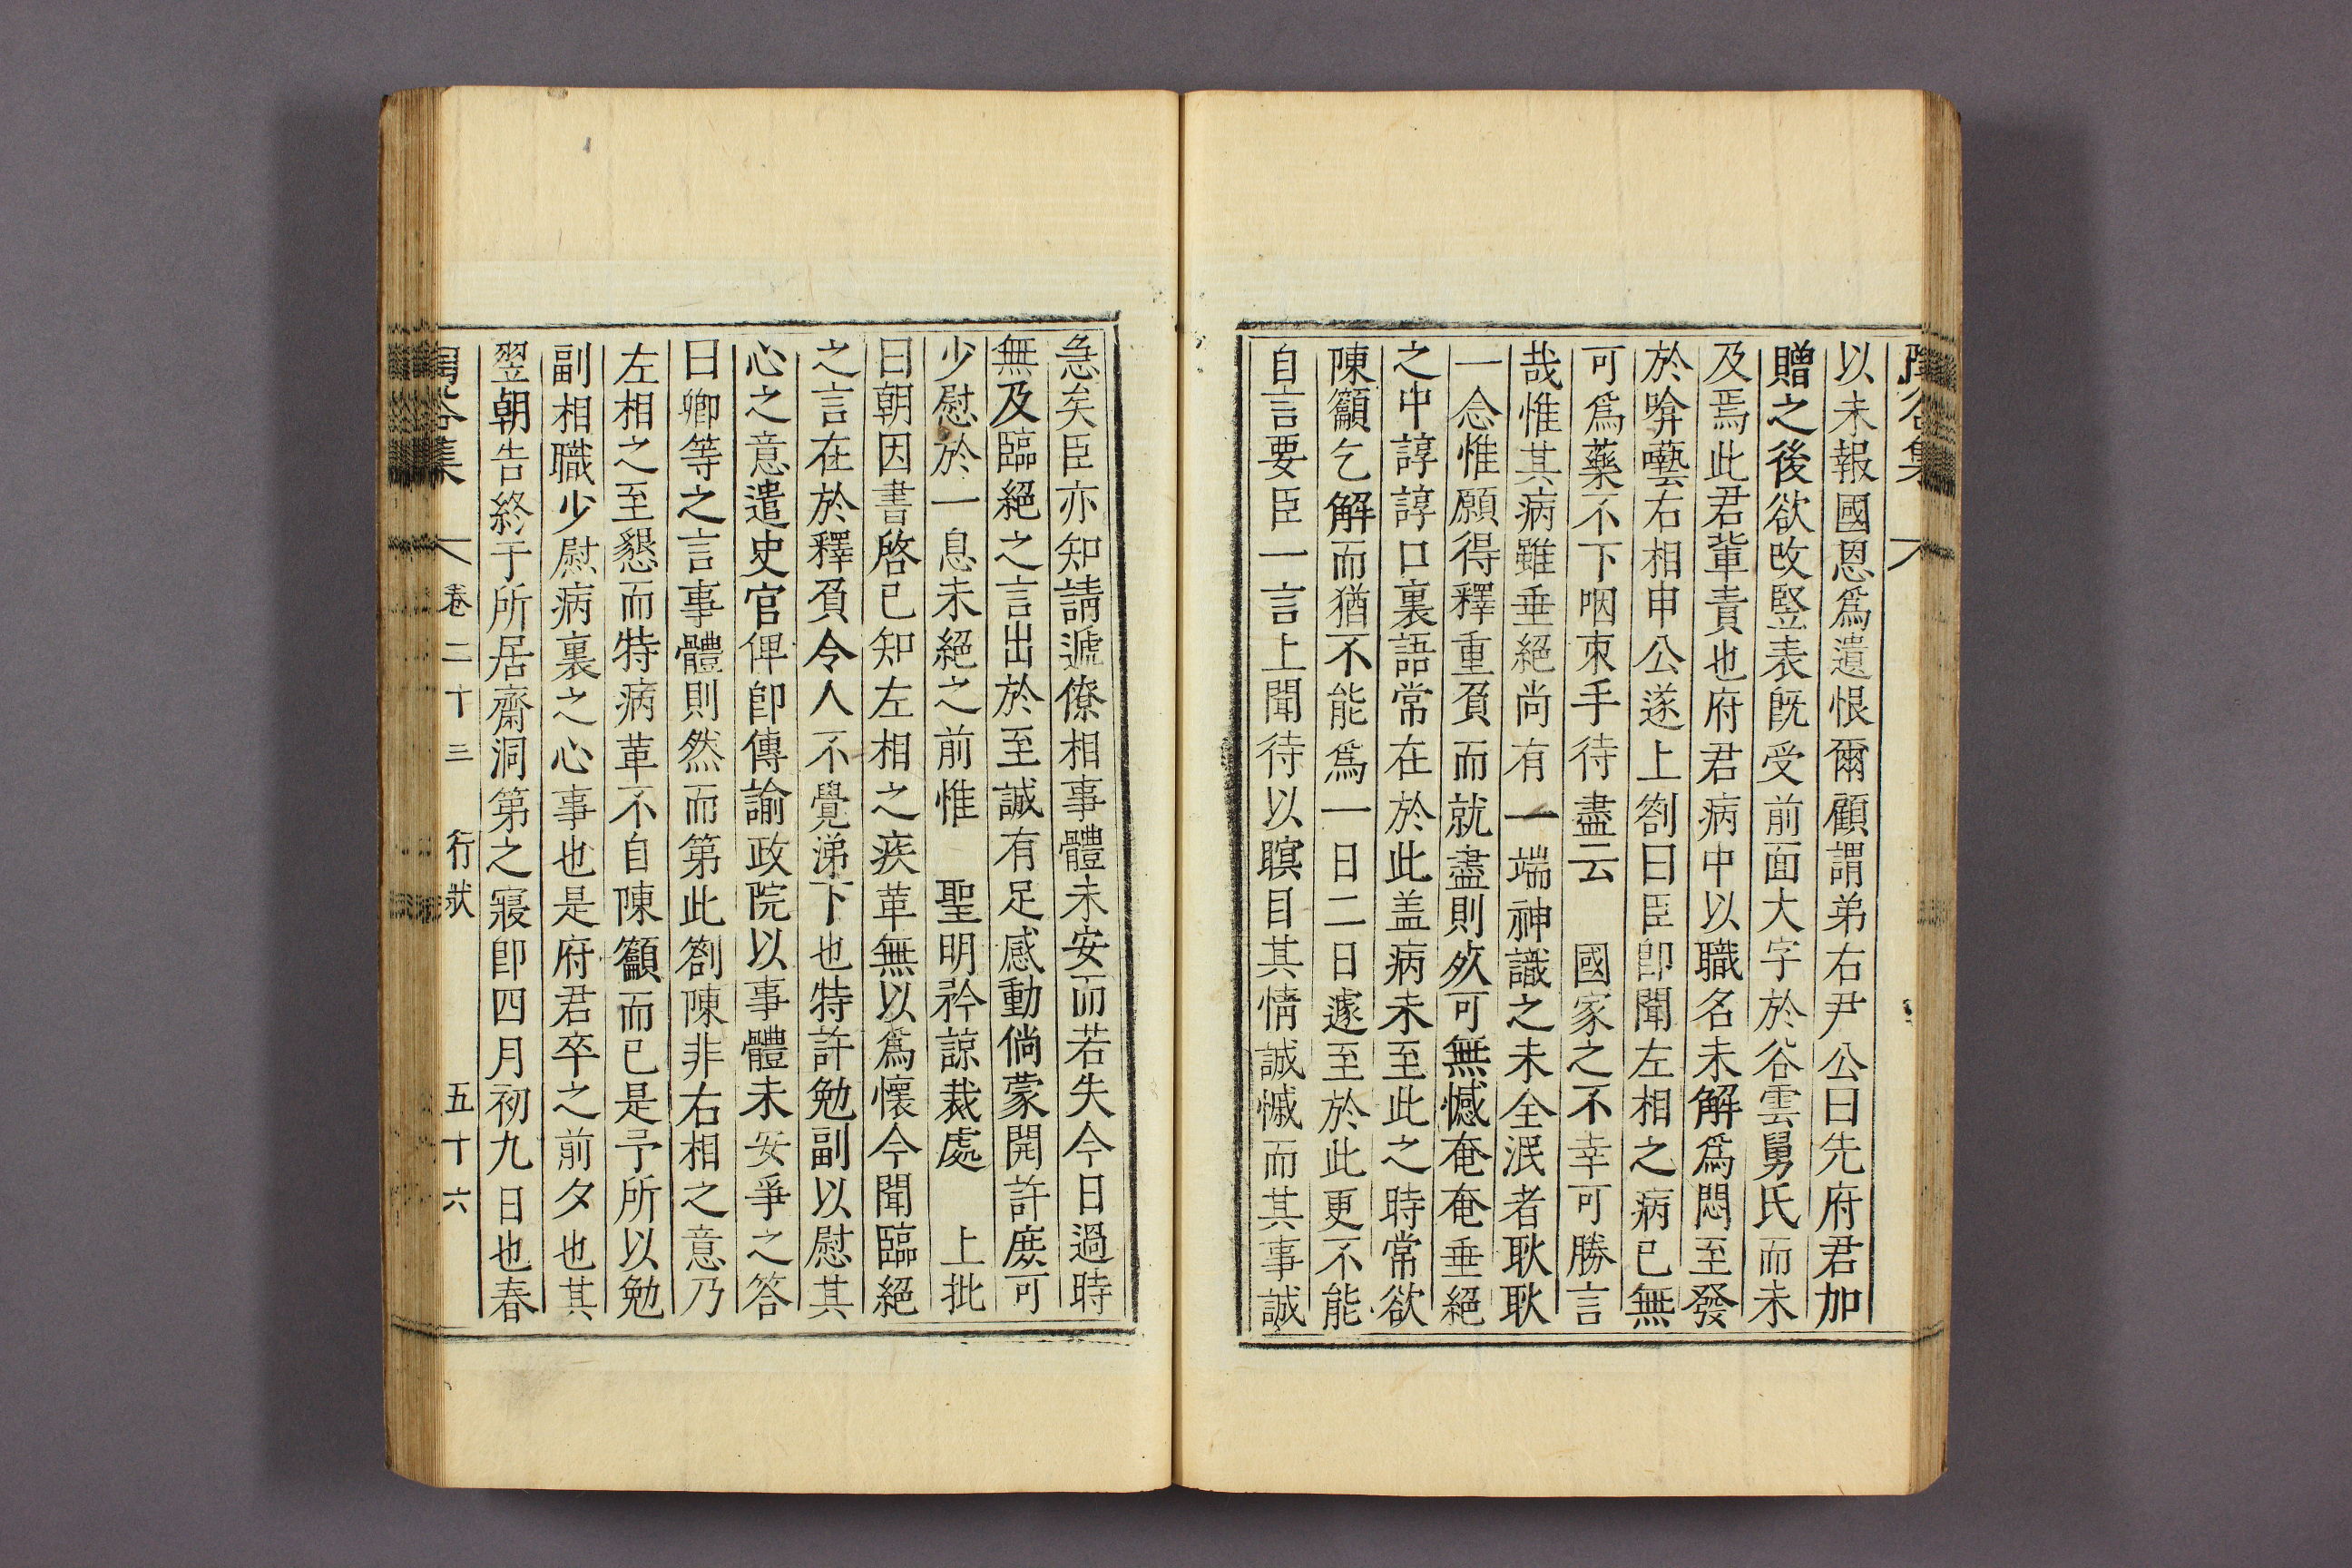 以未報國恩爲遺恨爾顧謂弟右尹公曰先府君加
贈之後欲改竪表旣受前面大字於谷雲舅氏而未
及焉此君軰責也府君病中以職名未解爲悶至發
於啽囈右相申公遂上劄曰臣卽聞左相之病已無
可爲藥不下咽束手待盡云　國家之不幸可勝言
哉惟其病雖垂絕尚有一端神識之未全泯者耿耿
一念惟願得釋重負而就盡則死可無憾奄奄垂絕
之中諄諄口裏語常在於此盖病未至此之時常欲
陳籲乞解而猶不能爲一日二日遽至於此更不能
自言要臣一言上聞待以瞑目其情誠慽而其事誠
急矣臣亦知請遞僚相事體未安而若失今日過時
無及臨絕之言出於至誠有足感動倘蒙開許庻可
少慰於一息未絕之前惟　聖明矜諒裁處　上批
曰朝因書啓已知左相之疾革無以爲懷今聞臨絕
之言在於釋負令人不覺涕下也特許勉副以慰其
心之意遣史官俾卽傳諭政院以事體未安爭之答
曰卿等之言事體則然而第此劄陳非右相之意乃
左相之至懇而特病革不自陳籲而已是予所以勉
副相職少慰病裏之心事也是府君卒之前夕也其
翌朝告終于所居齋洞第之寢卽四月初九日也春
陶谷集　卷二十三　行狀　五十六